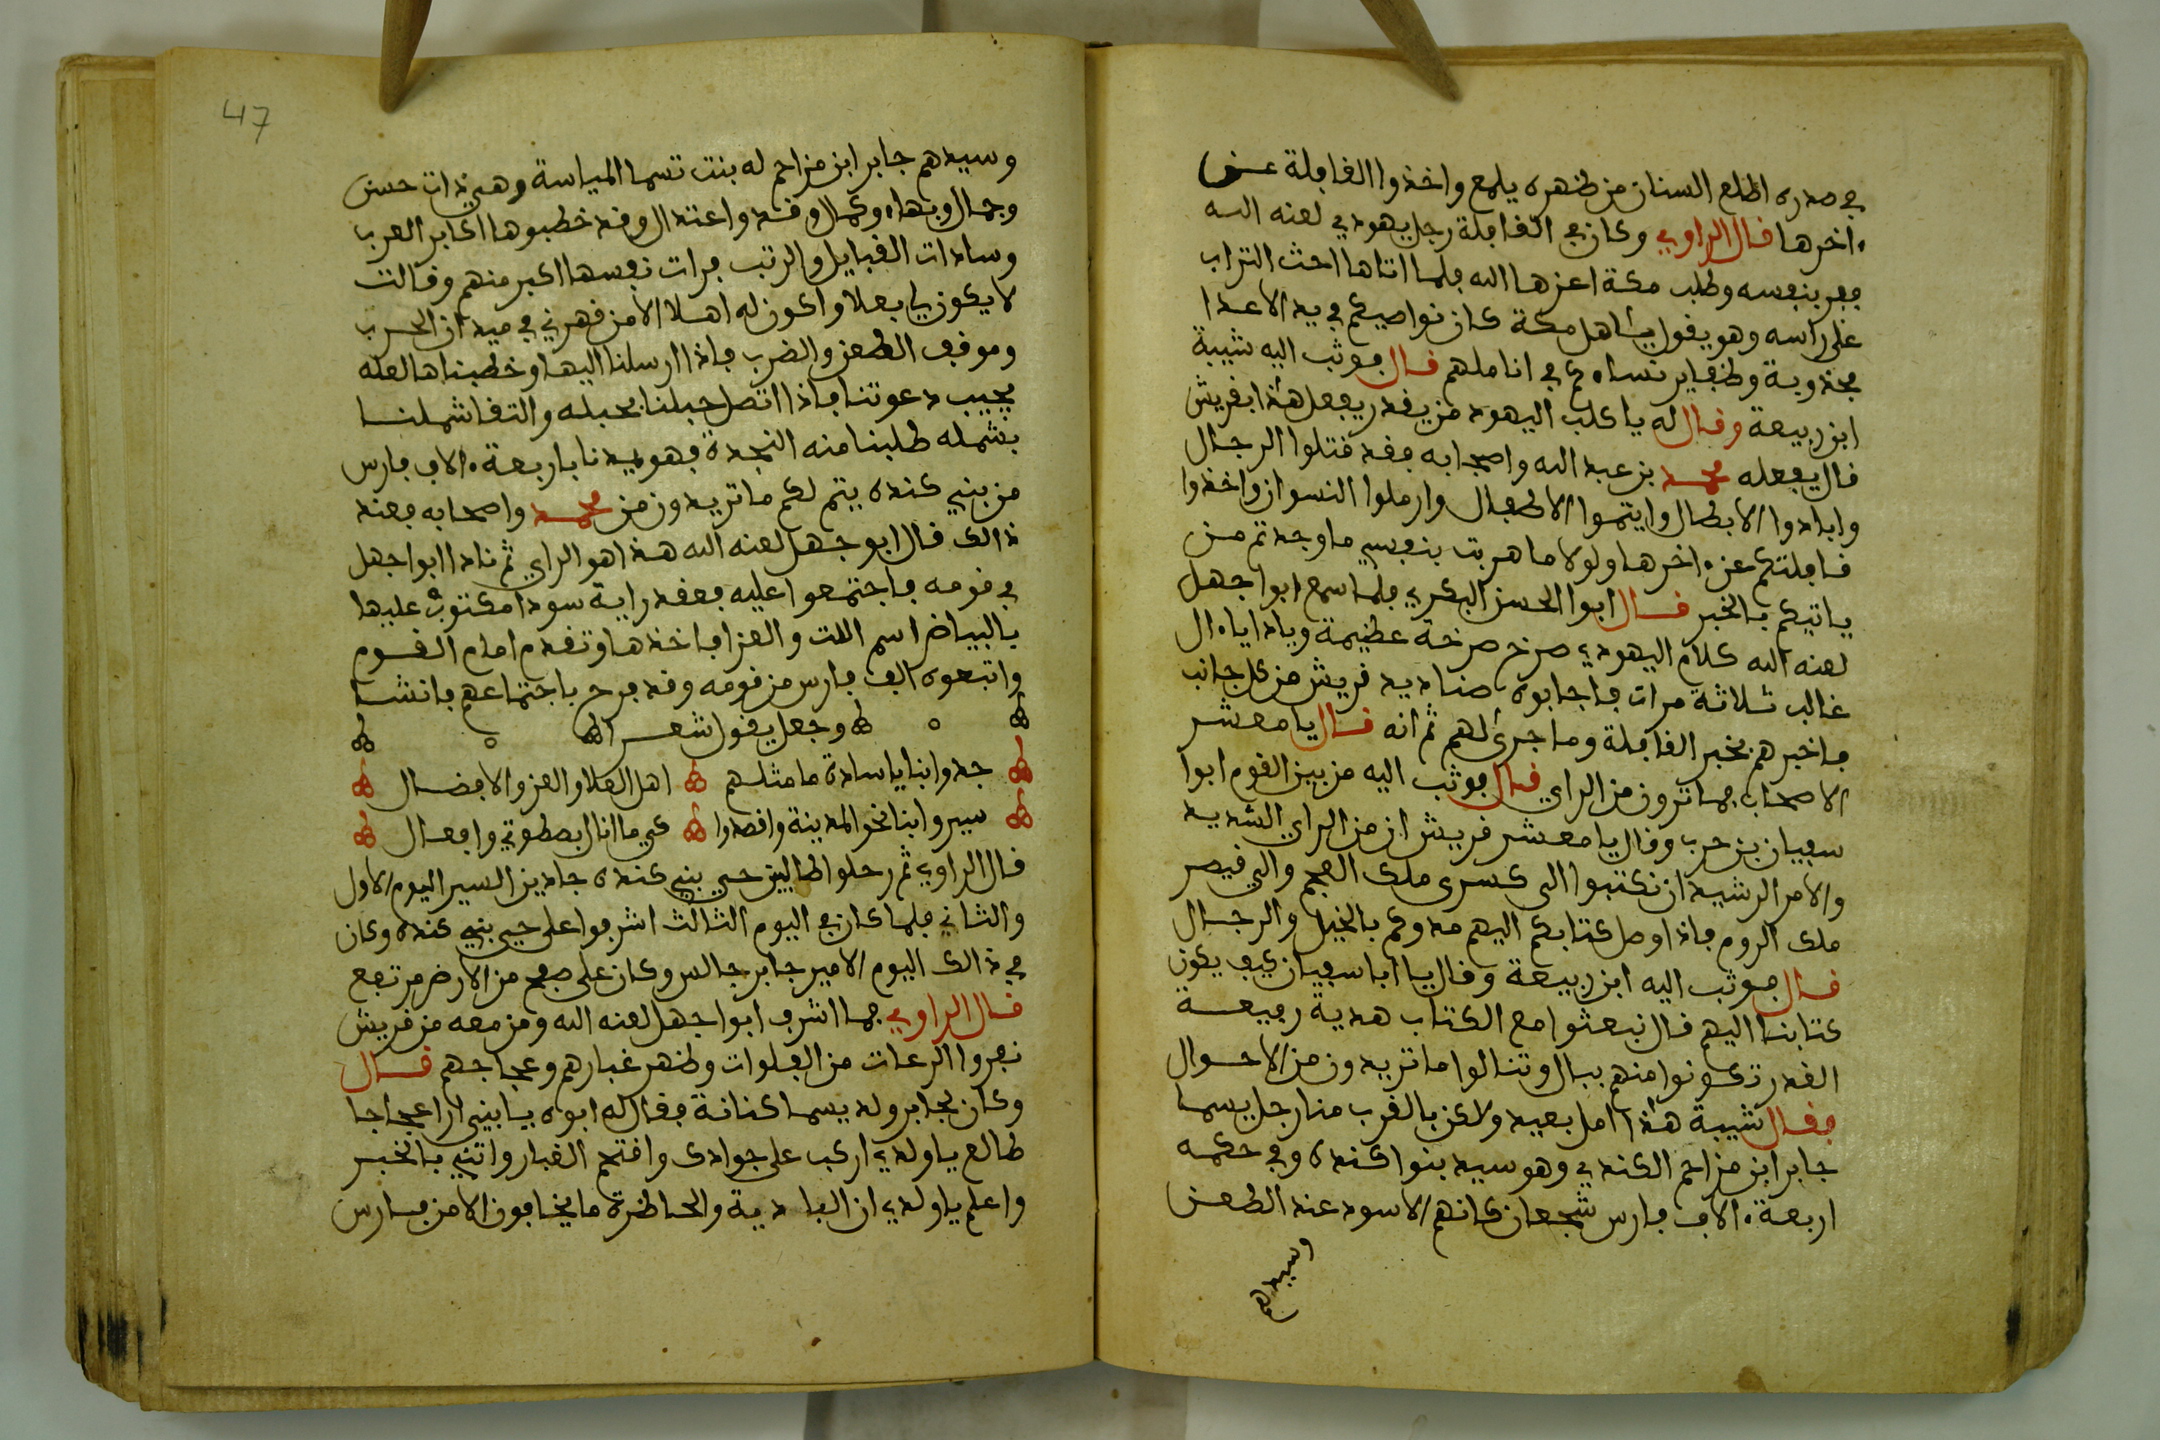 في صدره اطلع السنان من ظهره يلمع واخذوا القافلة عن
ءاخرها قال الراوي وكان في القافلة رجل يهودي لعنه الله
ففر بنفسه وطلب مكة اعزها الله فلما اتاها احث التراب
على راسه وهو يقول يااهل مكة كان نواصيكم في يد الاعدا
مجذوبة وظفاير نساءكم في اناملهم قال فوثب اليه شيبة
ابن ربيعة وقال له يا كلب اليهود من يقدر يفعل هذا بقريش
قال يفعله محمد بن عبد الله واصحابه فقد قتلوا الرجال
وابادوا الابطال وايتموا الاطفال وارملوا النسوان واخذوا
قافلتكم عن ءاخرها ولولا ما هربت بنفسي ما وجدتم من
ياتيكم بالخبر قال ابوا الحسن البكري فلما سمع ابوا جهل
لعنه الله كلام اليهودي صرخ صرخة عظيمة ونادا ياءال
غالب ثلاثة مرات فاجابوه صناديد قريش من كل جانب
فاخبرهم بخبر القافلة وما جرى لهم ثم انه قال يا معشر
الاصحاب فما ترون من الراي قال فوثب اليه من بين القوم ابوا
سفيان بن حرب وقال يا معشر قريش ان من الراي الشديد
والامر الرشيد ان نكتبوا الى كسرى ملك العجم والى قيصر
ملك الروم فاذا وصل كتابكم اليهم مدوكم بالخيل والرجال
قال فوثب اليه ابن ربيعة وقال يا ابا سفيان كيف يكون
كتابنا اليهم قال نبعثوا مع الكتاب هدية رفيعة
القدر تكونوا منهم ببال وتنالوا ما تريدون من الاحوال
فقال شيبة هذا امل بعيد ولاكن بالقرب منا رجل يسما
جابر ابن مزاحم الكندي وهو سيد بنوا كنده وفي حكمه
اربعةءالاف فارس شجعان كانهم الاسود عند الطعن
وسيدهم
47
وسيدهم جابر ابن مزاحم له بنت تسما المياسة وهي ذات حسن
وجمال وبهاء وكمال وقد واعتدال وقد خطبوها اكابر العرب
وسادات القبايل والرتب فرات نفسها اكبر منهم وقالت
لا يكون لي بعلا واكون له اهلا الا من قهرني في ميدان الحرب
وموقف الطعن والضرب فاذا ارسلنا اليها وخطبناها لعله
يجيب دعوتنا فاذا اتصل حبلنا بحبله والتفا شملنا
بشمله طلبنا منه النجدة فهو يمدنا باربعةءالاف فارس
من بني كنده يتم لكم ما تريدون من محمد واصحابه فعند
ذالك قال ابو جهل لعنه الله هذا هو الراي ثم نادا ابوا جهل
في قومه فاجتمعوا عليه فعقد راية سودا مكتوب عليها
بالبياض اسم اللت والعزا فاخذها وتقدم امام القوم
واتبعوه الف فارس من قومه وقد فرح باجتماعهم فانشا
وجعل يقول شعرا
جدوا بنا يا سادة ما مثلهم اهل العلا والعز والافضال
سيروا بنا نحو المدينة واقصدوا كي ما انال بصطوتي وافعال
قال الراوي ثم رحلوا طالبين حي بني كنده جادين السير اليوم الاول
والثاني فلما كان في اليوم الثالث اشرفوا على حي بني كنده وكان
في ذالك اليوم الامير جابر جالس وكان على صفح من الارض مرتفع
قال الراوي فما اشرف ابوا جهل لعنه الله ومن معه من قريش
نفروا الرعات من الفلوات وظهر غبارهم وعجاجهم قال
وكان لجابر ولد يسما كنانة فقال له ابوه يا بني ارا عجاجا
طالع يا ولدي اركب على جوادك واقتحم الغبار واتني بالخبر
واعلم يا ولدي ان البادية والحاظرة ما يخافون الا من فارس